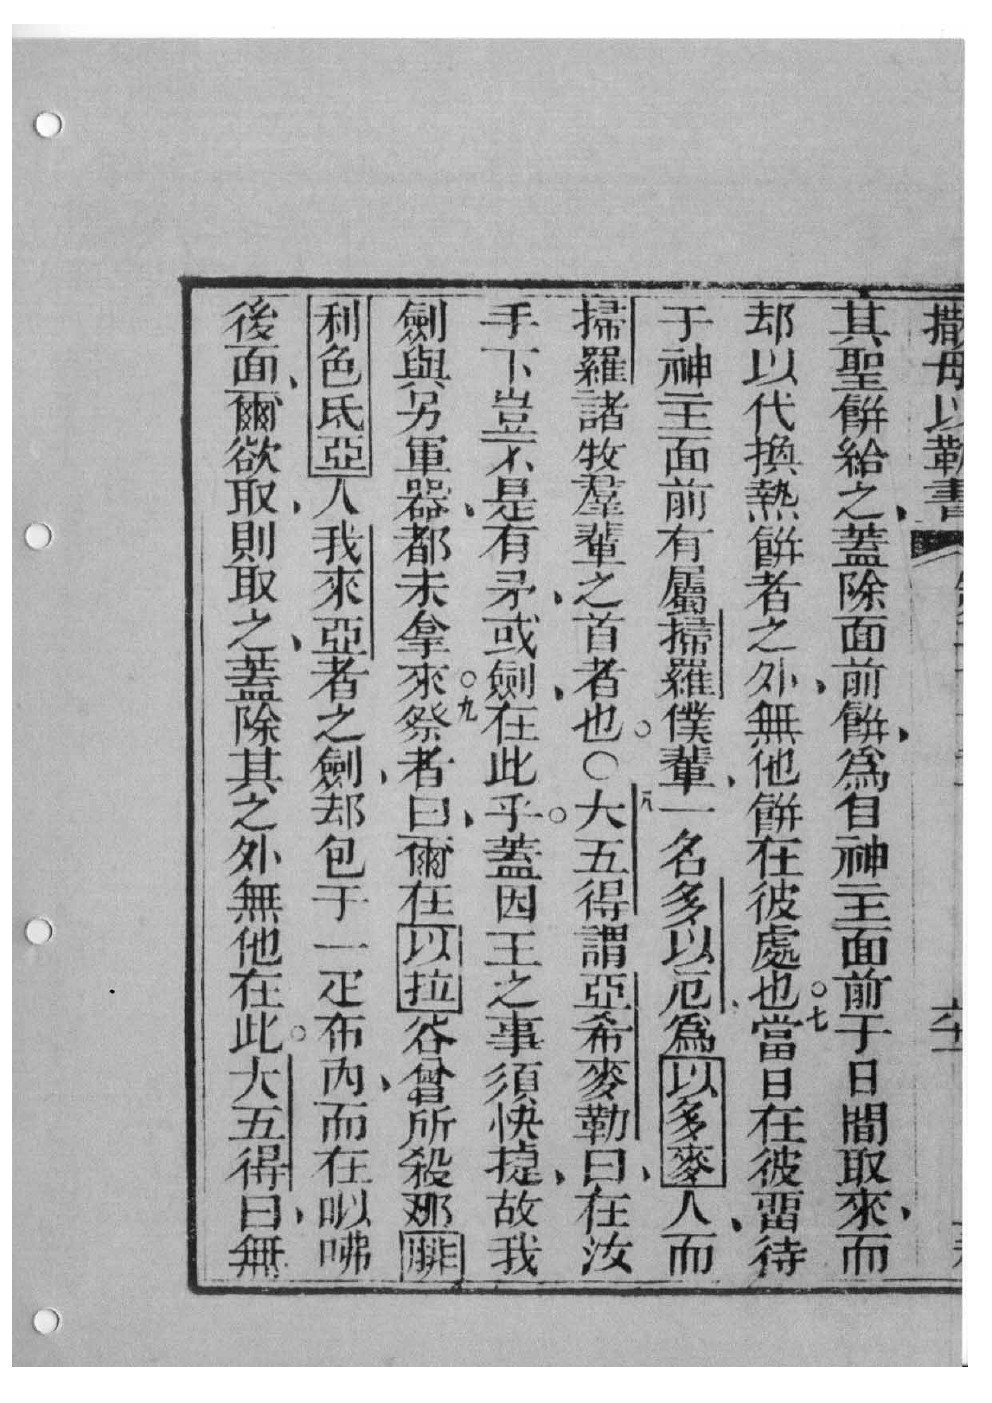 撒母以勒書
其聖餅給之、蓋除面前餅、爲自神主面前于日間取來、而
却以代換熱餅者之外、無他餅在彼處也。七當日在彼畱待
于神主面前有屬掃羅僕輩、一名多以厄、爲以多麥人、而
掃羅諸牧羣輩之首者也。○八大五得謂亞希麥勒曰、在汝
手下豈不是有矛、或劍、在此乎。蓋因王之事須快捷、故我
劍與另軍器、都未拿來。九祭者曰、爾在以拉谷曾所殺那腓
利色氐亞人我來亞者之劍、却包于一疋布內、而在𠵽咈
後面、爾欲取、則取之、蓋除其之外無他在此。大五得曰、無